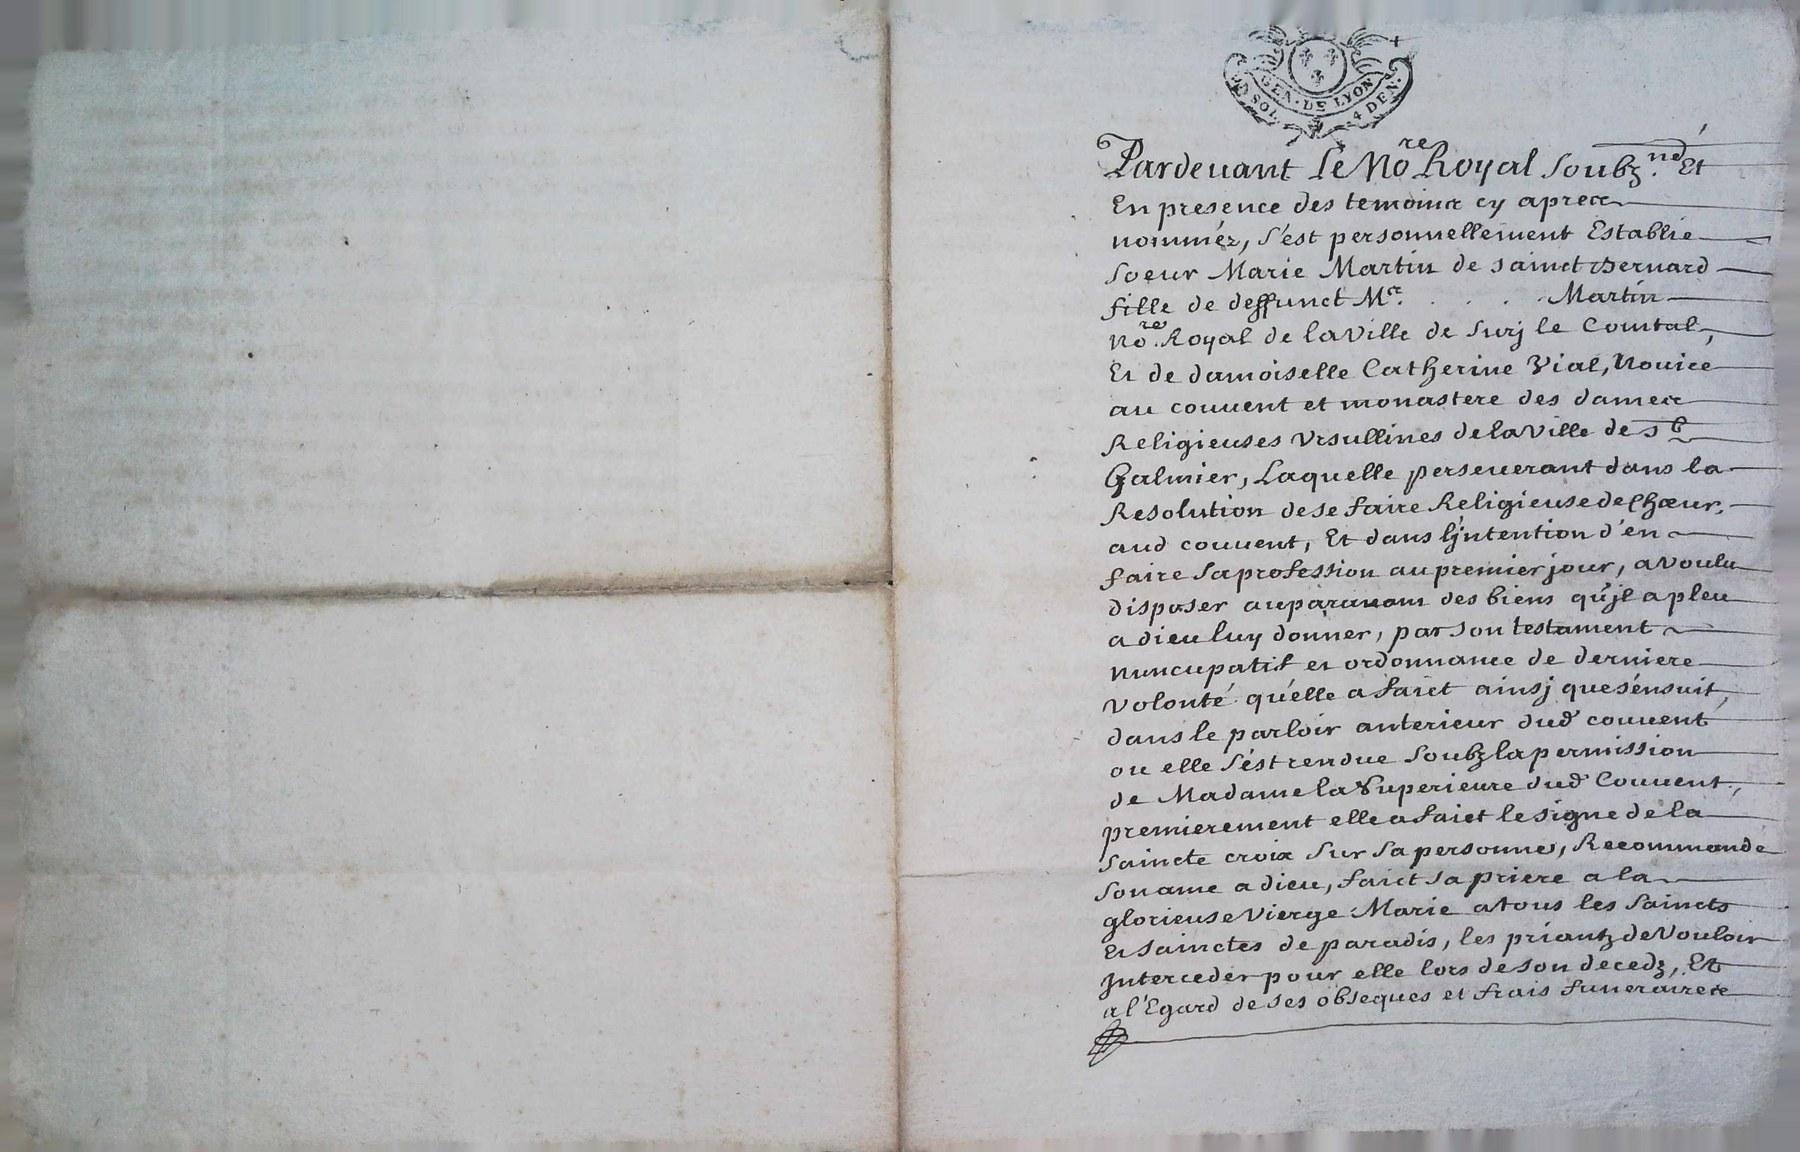 GEN. DE LYON
UN SOL. 4 DEN.
Pardevant Le No.re Royal Soubz.né Et
En presence des temoins cy apres
nommez, s'est personnellement Establie
soeur Marie Martin de sainct Bernard
fille de deffunct M.e . . . . Martin
No.re Royal de la Ville de Surj le Comtal,
Et de damoiselle Catherine Vial, Novice
au couvent et monastere des dames
Religieuses Ursullines de la Ville de St
Galmier, Laquelle perseverant dans la
Resolution de se faire Religieuse de Chœur,
aud couvent, Et dans l'jntention d'en
faire sa profession au premier jour, a voulu
disposer auparavant des biens qu'jl a pleu
a dieu luy donner, par son testament
nuncupatif et ordonnance de derniere
volonté qu'elle a faict ainsj que s'ensuit,
dans le parloir anterieur dud couvent
ou elle s'est rendue soubz la permission
de Madame la Superieure dud Couvent,
premierement elle a faict le signe de la
saincte croix sur sa personne, Recommandé
son ame a dieu, faict sa priere a la
glorieuse Vierge Marie a tous les Saincts
et Sainctes de paradis, les priantz de Vouloir
Jnterceder pour elle lors de son decedz, Et
a l'Egard de ses obseques et frais funeraires